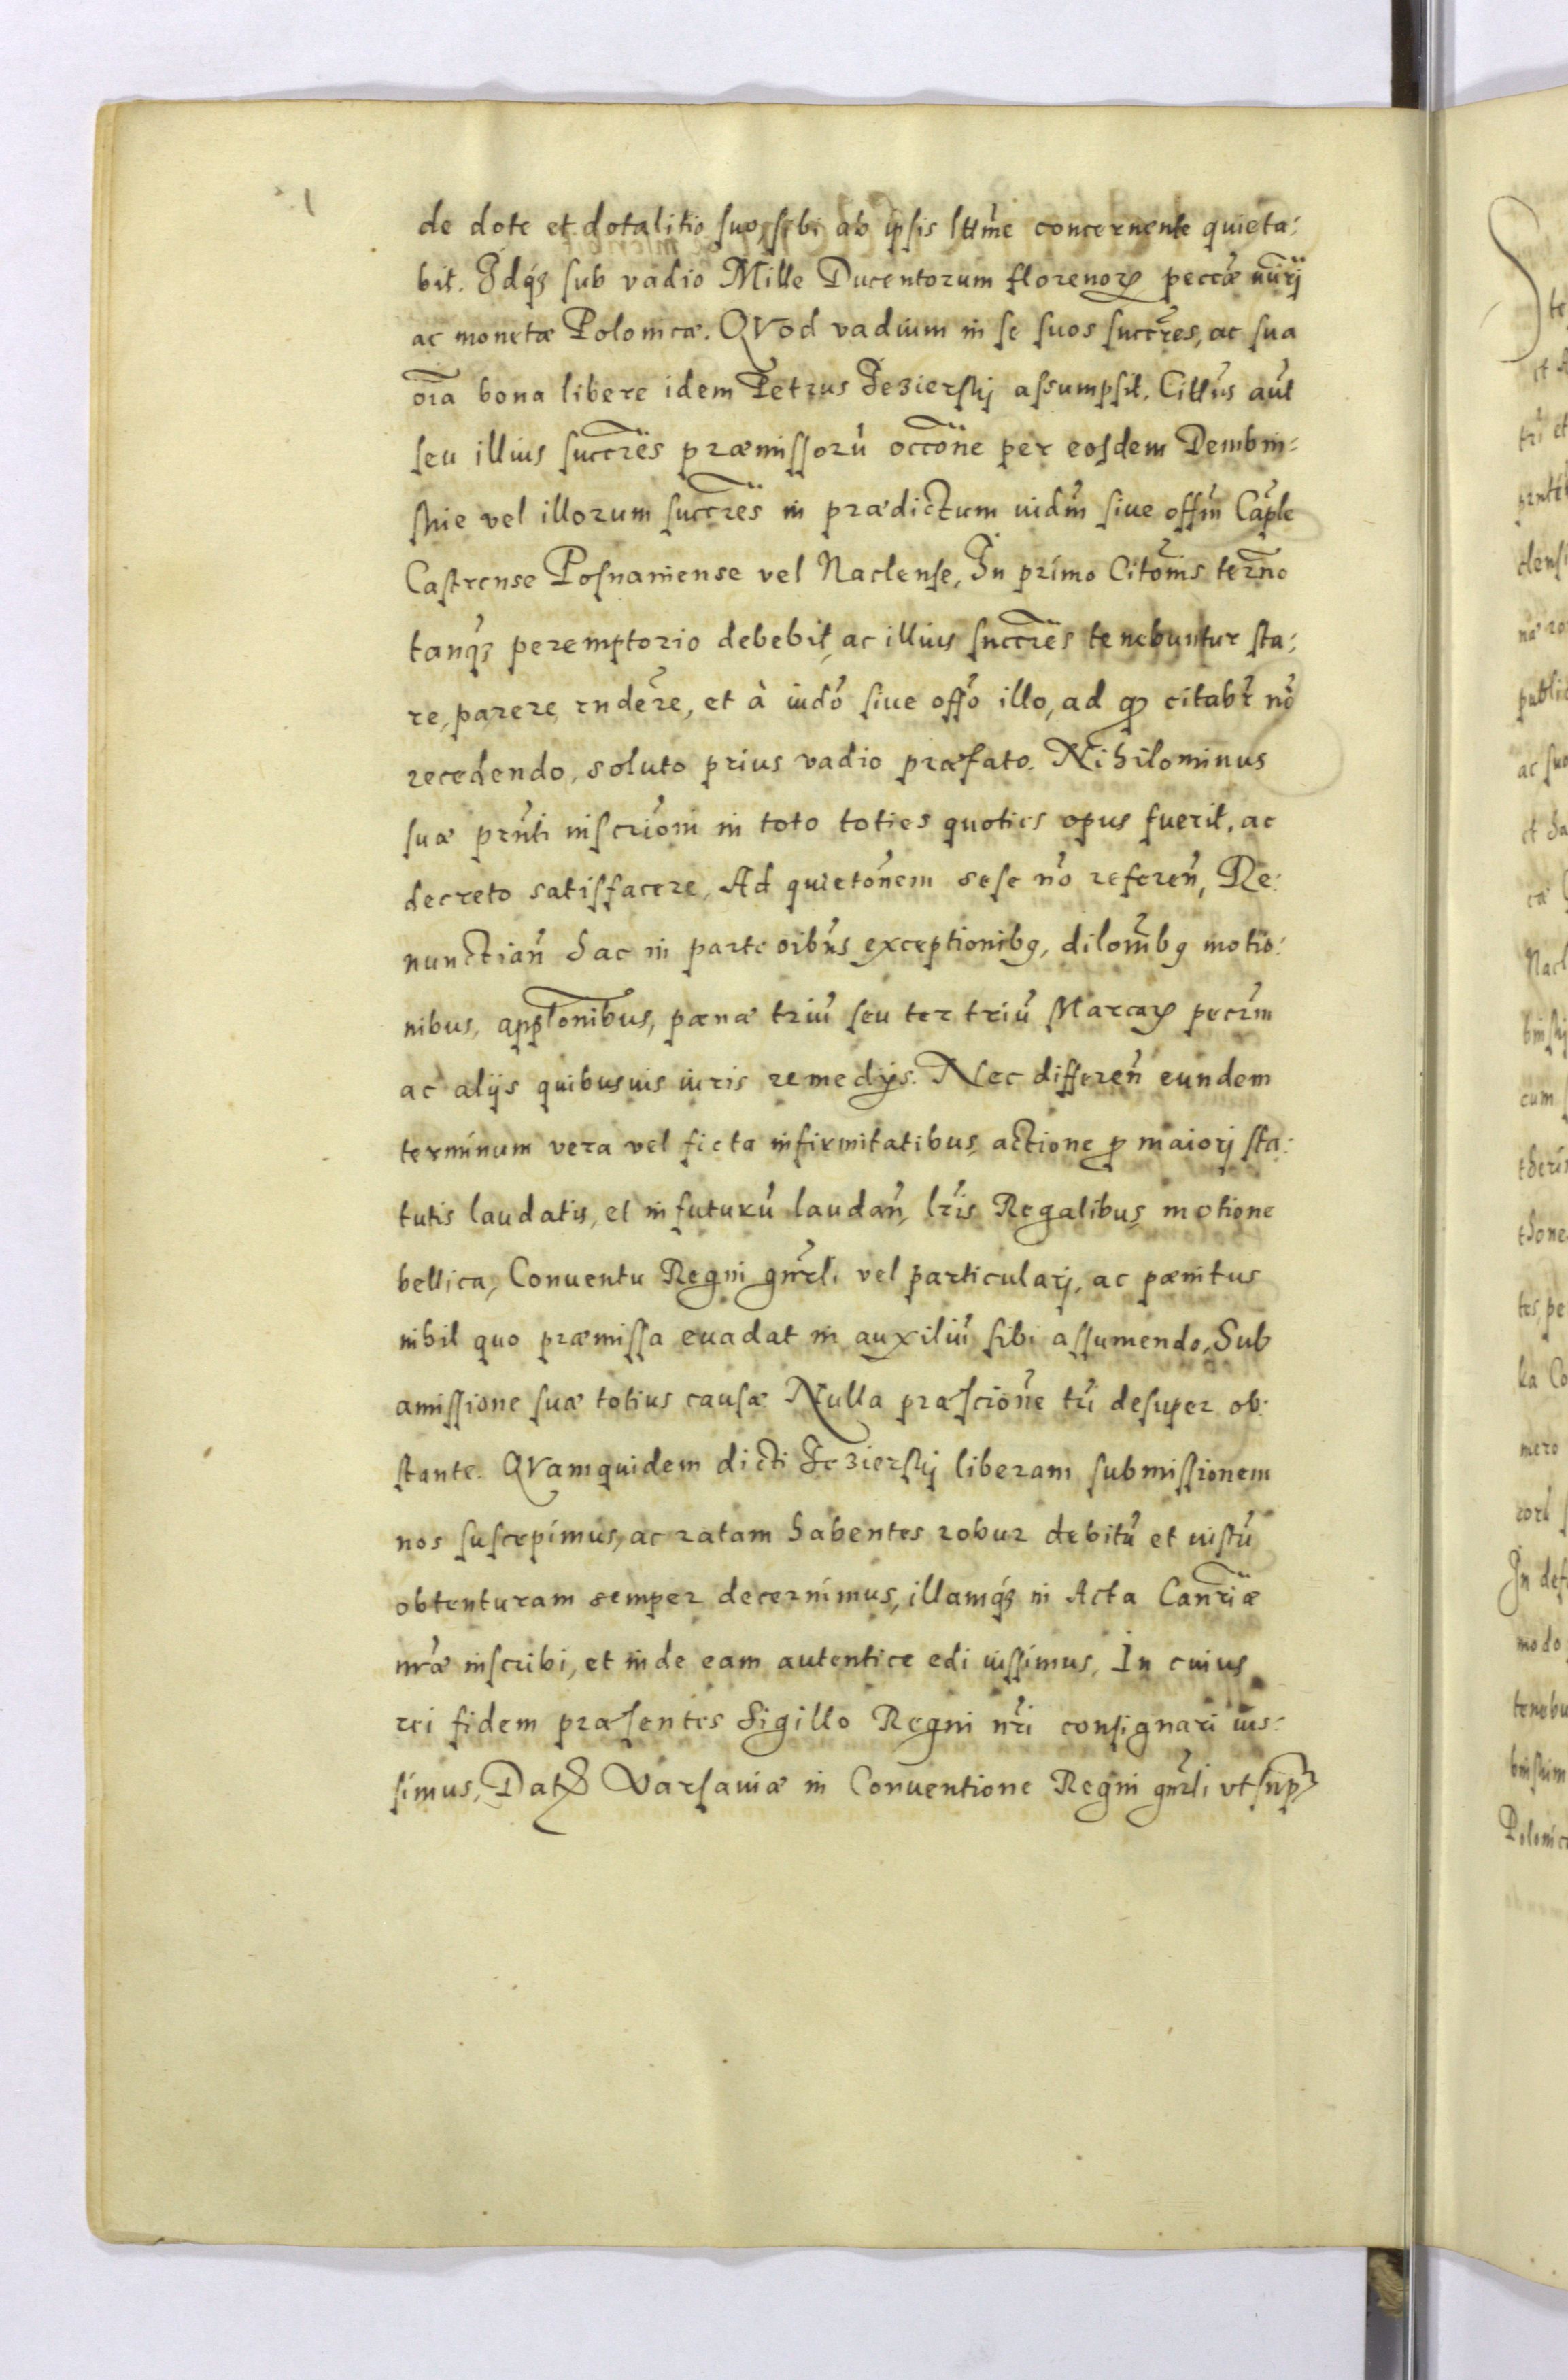 de dote et dotalitio suo, sibi ab ipsis lttme concernente quieta:
bit. Idqȝ sub vadio Mille Ducentorum florenorꝝ peccæ nurj
ac monetæ Polonicæ. QVod vadium in se suos succres, ac sua
oia bona libere idem Petrus Jezierskj assumpsit. Cittus aut
seu illius succres præmissorū occone per eosdem Dembin:
skie vel illorum succres in prædictum iudm siue offm Caple
Castrense Posnaniense vel Naclense, In primo Citonis terno
tanqȝ peremptorio debebit, ac illius succres tenebuntur sta:
re, parere rndere, et à iudo siue offo illo, ad qꝫ citabr no
recedendo, soluto prius vadio præfato. Nihilominus
suæ prnti inscrioni in toto toties quoties opus fuerit, ac
decreto satisfacere, Ad quietonem sese no referen, Re:
nunctian hac in parte oibus exceptionibꝯ, dilonibꝯ motio:
nibus, applonibus, pænæ triū seu ter triū Marcarꝝ pecrm
ac alijs quibusuis iuris remedijs. Nec differen eundem
terminum vera vel ficta infirmitatibus, actione ꝓ maiorj sta:
tutis laudatis, et in futurū laudan, lris Regalibus, motione
bellica, Conuentu Regni gnrli vel particularj, ac pænitus
nihil quo præmissa euadat in auxiliū sibi assumendo, Sub
amissione suæ totius causæ Nulla præscrione tri desuper ob:
stante. QVamquidem dicti Jezierskj liberam submissionem
nos suscepimus, ac ratam habentes robur debitū et iustū
obtenturam semper decernimus, illamqȝ in Acta Canriæ
nræ inscribi, et inde eam autentice edi iussimus, In cuius
rei fidem præsentes Sigillo Regni nri consignari ius:
simus, Datꝫ Varsauiæ in Conuentione Regni gnrli vt supr